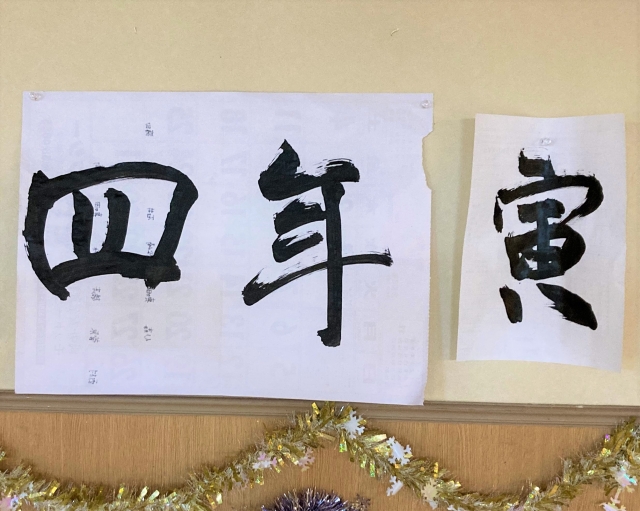 四年
寅